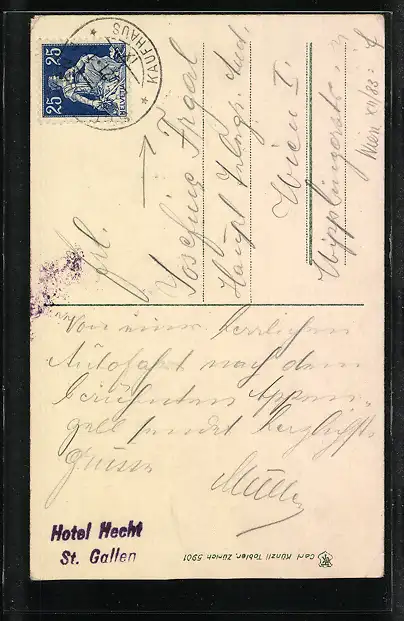 25 25
HELVETIA
KAUFHAUS
Frl.
Josefine
Haupt
Wien I.
Wipplingerstr.
Wien XII/83
Von einer herrlichen
Autofahrt nach dem
berühmten Appen-
zell sendet herzlichste
Grüsse
Müller
Hotel Hecht
St. Gallen
Carl Künzli Tobler, Zürich 5901